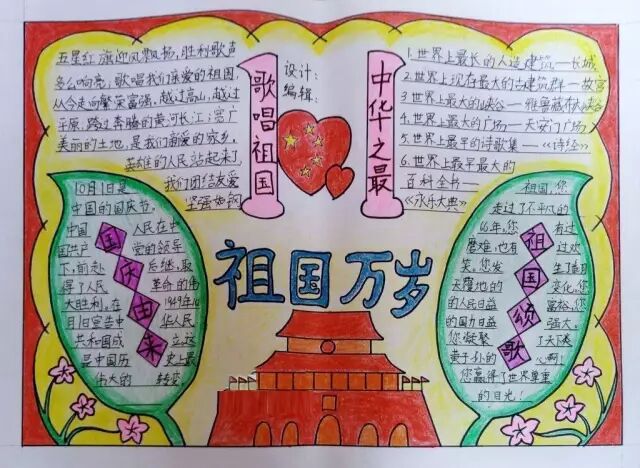 五星红旗迎风飘扬，胜利歌声
多么响亮；歌唱我们亲爱的祖国，
从今走向繁荣富强。越过高山，越过
平原，跨过奔腾的黄河长江；宽广
美丽的土地，是我们亲爱的家乡，
英雄的人民站起来了
我们团结友爱
坚强如钢
歌唱祖国
设计：
编辑：
中华之最
1.世界上最长的人造建筑—长城
2.世界上现存最大的古建筑群—故宫
3.世界上最大的峡谷—雅鲁藏布大峡谷
4.世界上最大的广场—天安门广场
5.世界上最早的诗歌集—《诗经》
6.世界上最早最大的
百科全书—
《永乐大典》
祖国万岁
国庆由来
10月1日是
中国的国庆节。
中国 人民在中
国共产 党的领导
下，前赴 后继，取
得了人民 革命的伟
大胜利。在 1949年10
月1日宣告中 华人民
共和国成 立，这
是中国历 史上最
伟大的 转变。
祖国颂歌
祖国，您
走过了不平凡的
64年，您 有过
磨难，也有 过欢
笑。您发 生了番
天覆地的 变化，您
的人民日益 富裕，您
的国力日益 强大。
您凝聚 了天下炎
黄子孙的 心啊！
您赢得了世界尊重
的目光！